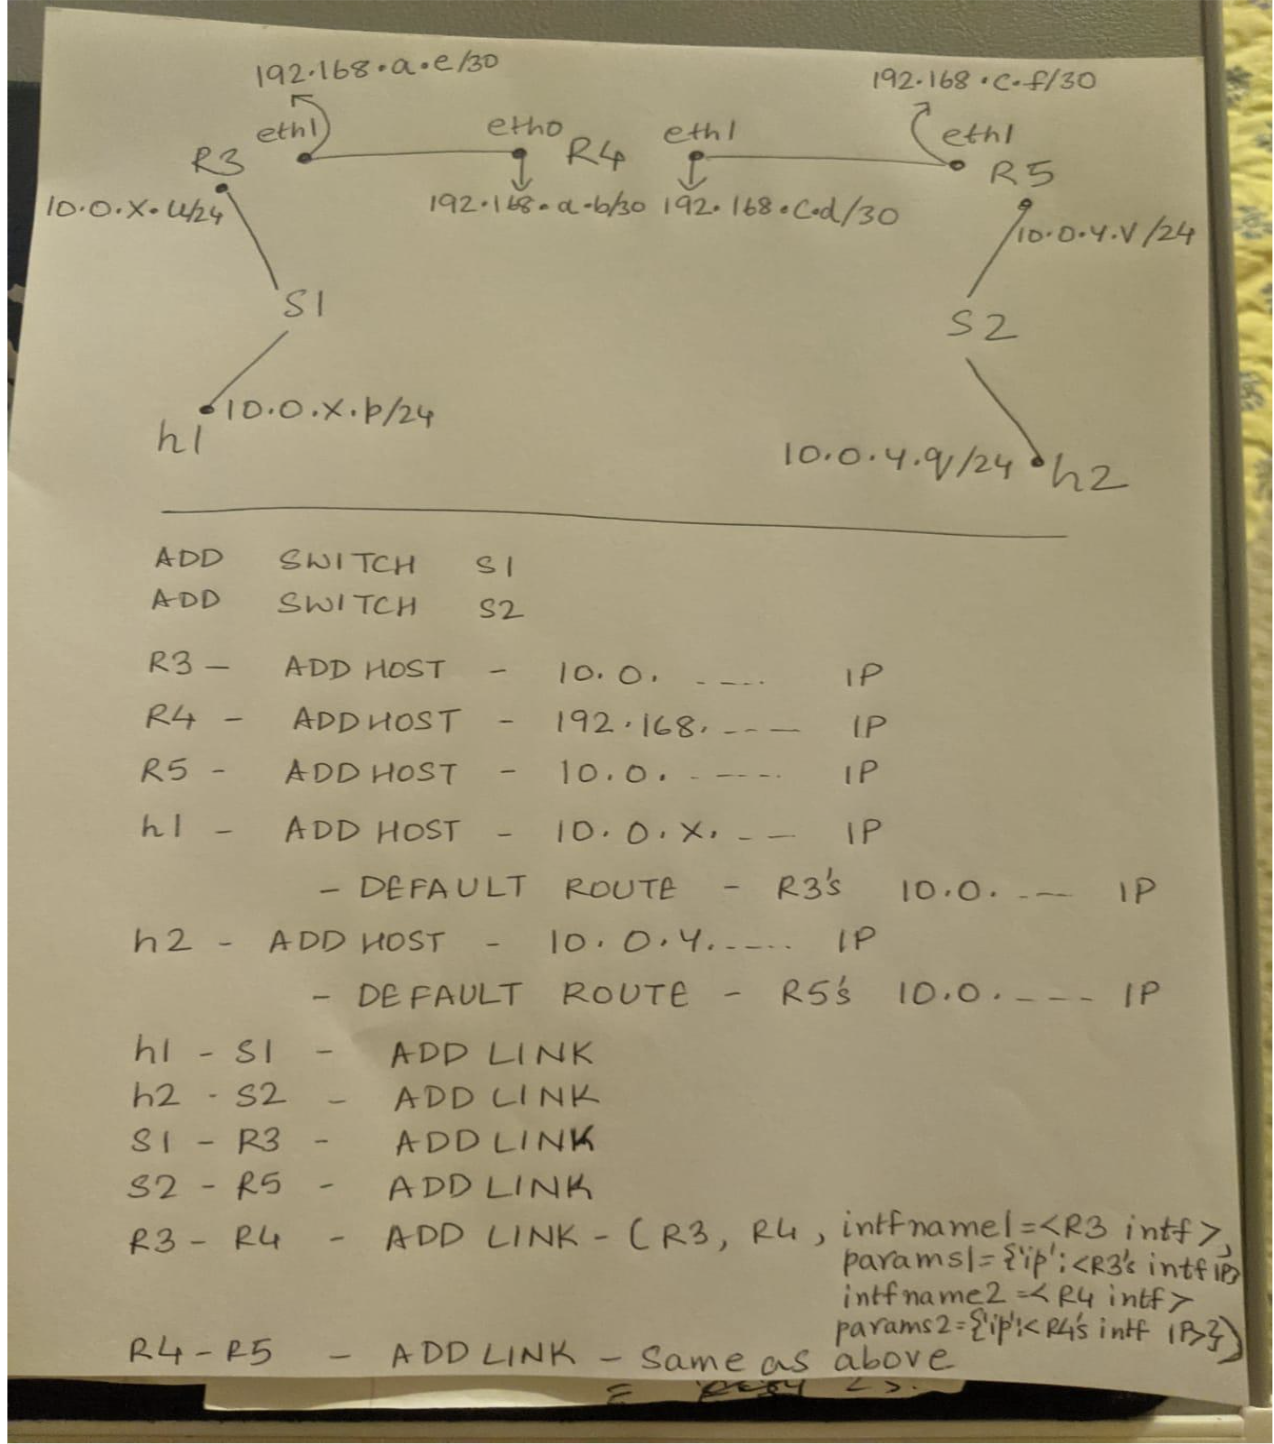 192.168.a.e/30
192.168.c.f/30
eth1
eth0
eth1
eth1
R3
R4
R5
10.0.x.u/24
192.168.a.b/30
192.168.c.d/30
10.0.y.v/24
S1
S2
10.0.x.p/24
h1
10.0.y.q/24
h2
ADD SWITCH S1
ADD SWITCH S2
R3 - ADD HOST - 10.0. ----- IP
R4 - ADD HOST - 192.168. --- IP
R5 - ADD HOST - 10.0. ----- IP
h1 - ADD HOST - 10.0.X. -- IP
- DEFAULT ROUTE - R3's 10.0. --- IP
h2 - ADD HOST - 10.0.Y. ---- IP
- DEFAULT ROUTE - R5's 10.0. ---- IP
h1 - S1 - ADD LINK
h2 - S2 - ADD LINK
S1 - R3 - ADD LINK
S2 - R5 - ADD LINK
R3 - R4 - ADD LINK - (R3, R4, intfname1=<R3 intf>,
params1={'ip':<R3's intf IP>}
intfname2=<R4 intf>
params2={'ip':<R4's intf IP>})
R4 - R5 - ADD LINK - Same as above